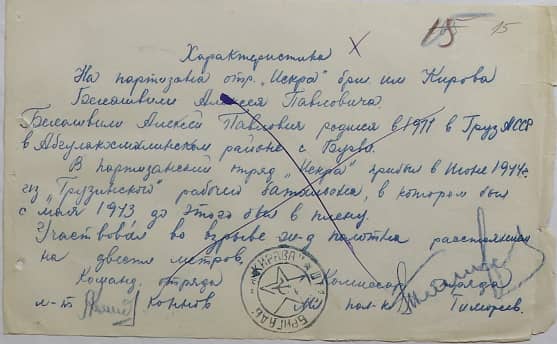 15 15
Характеристика
На партизана отр. "Искра" бриг. им. Кирова
Бежашвили Алексея Павловича.
Бежашвили Алексей Павлович родился в 1911 в Груз АССР
в районе с.
В партизанский отряд "Искра" прибыл в Июне 1944г.
из "Грузинского" рабочего батальона, в котором был
с мая 1943 до этого был в плену.
Участвовал во взрыве ж-д полотна расстоянием
на двести метров.
Команд. отряда Комиссар отряда
л-т пол-к Тимофеев.
БРИГАДЫ